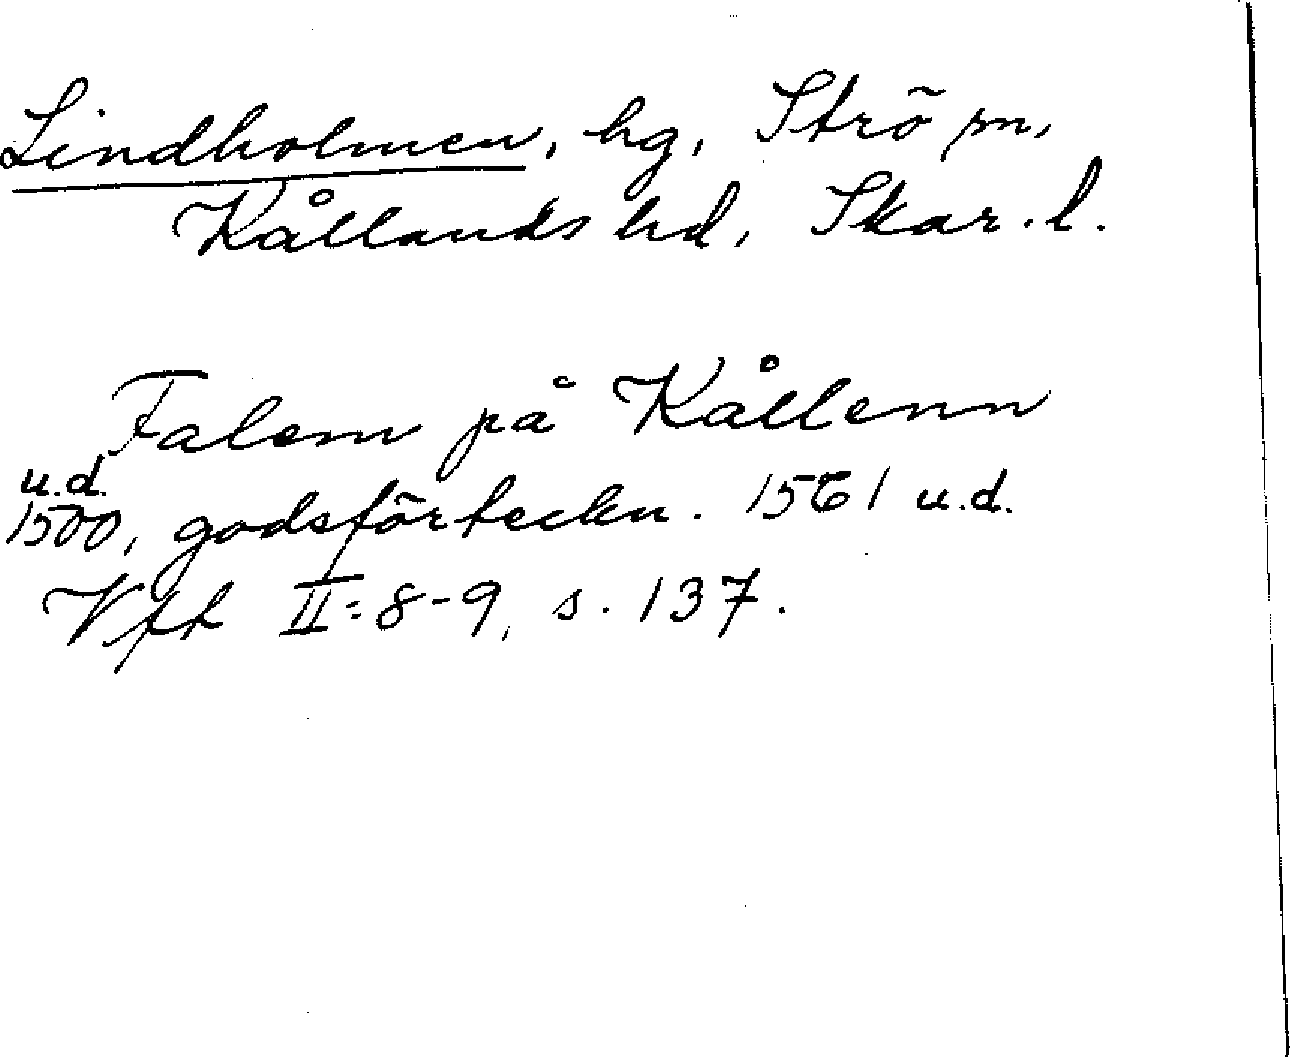 Lindholmen, hg, Strö sn,
Kållands hd, Skar. l.
Falem på Kållenn
u.d.
1500, godsförteckn. 1561 u.d.
Vfft II:8-9, s. 137.